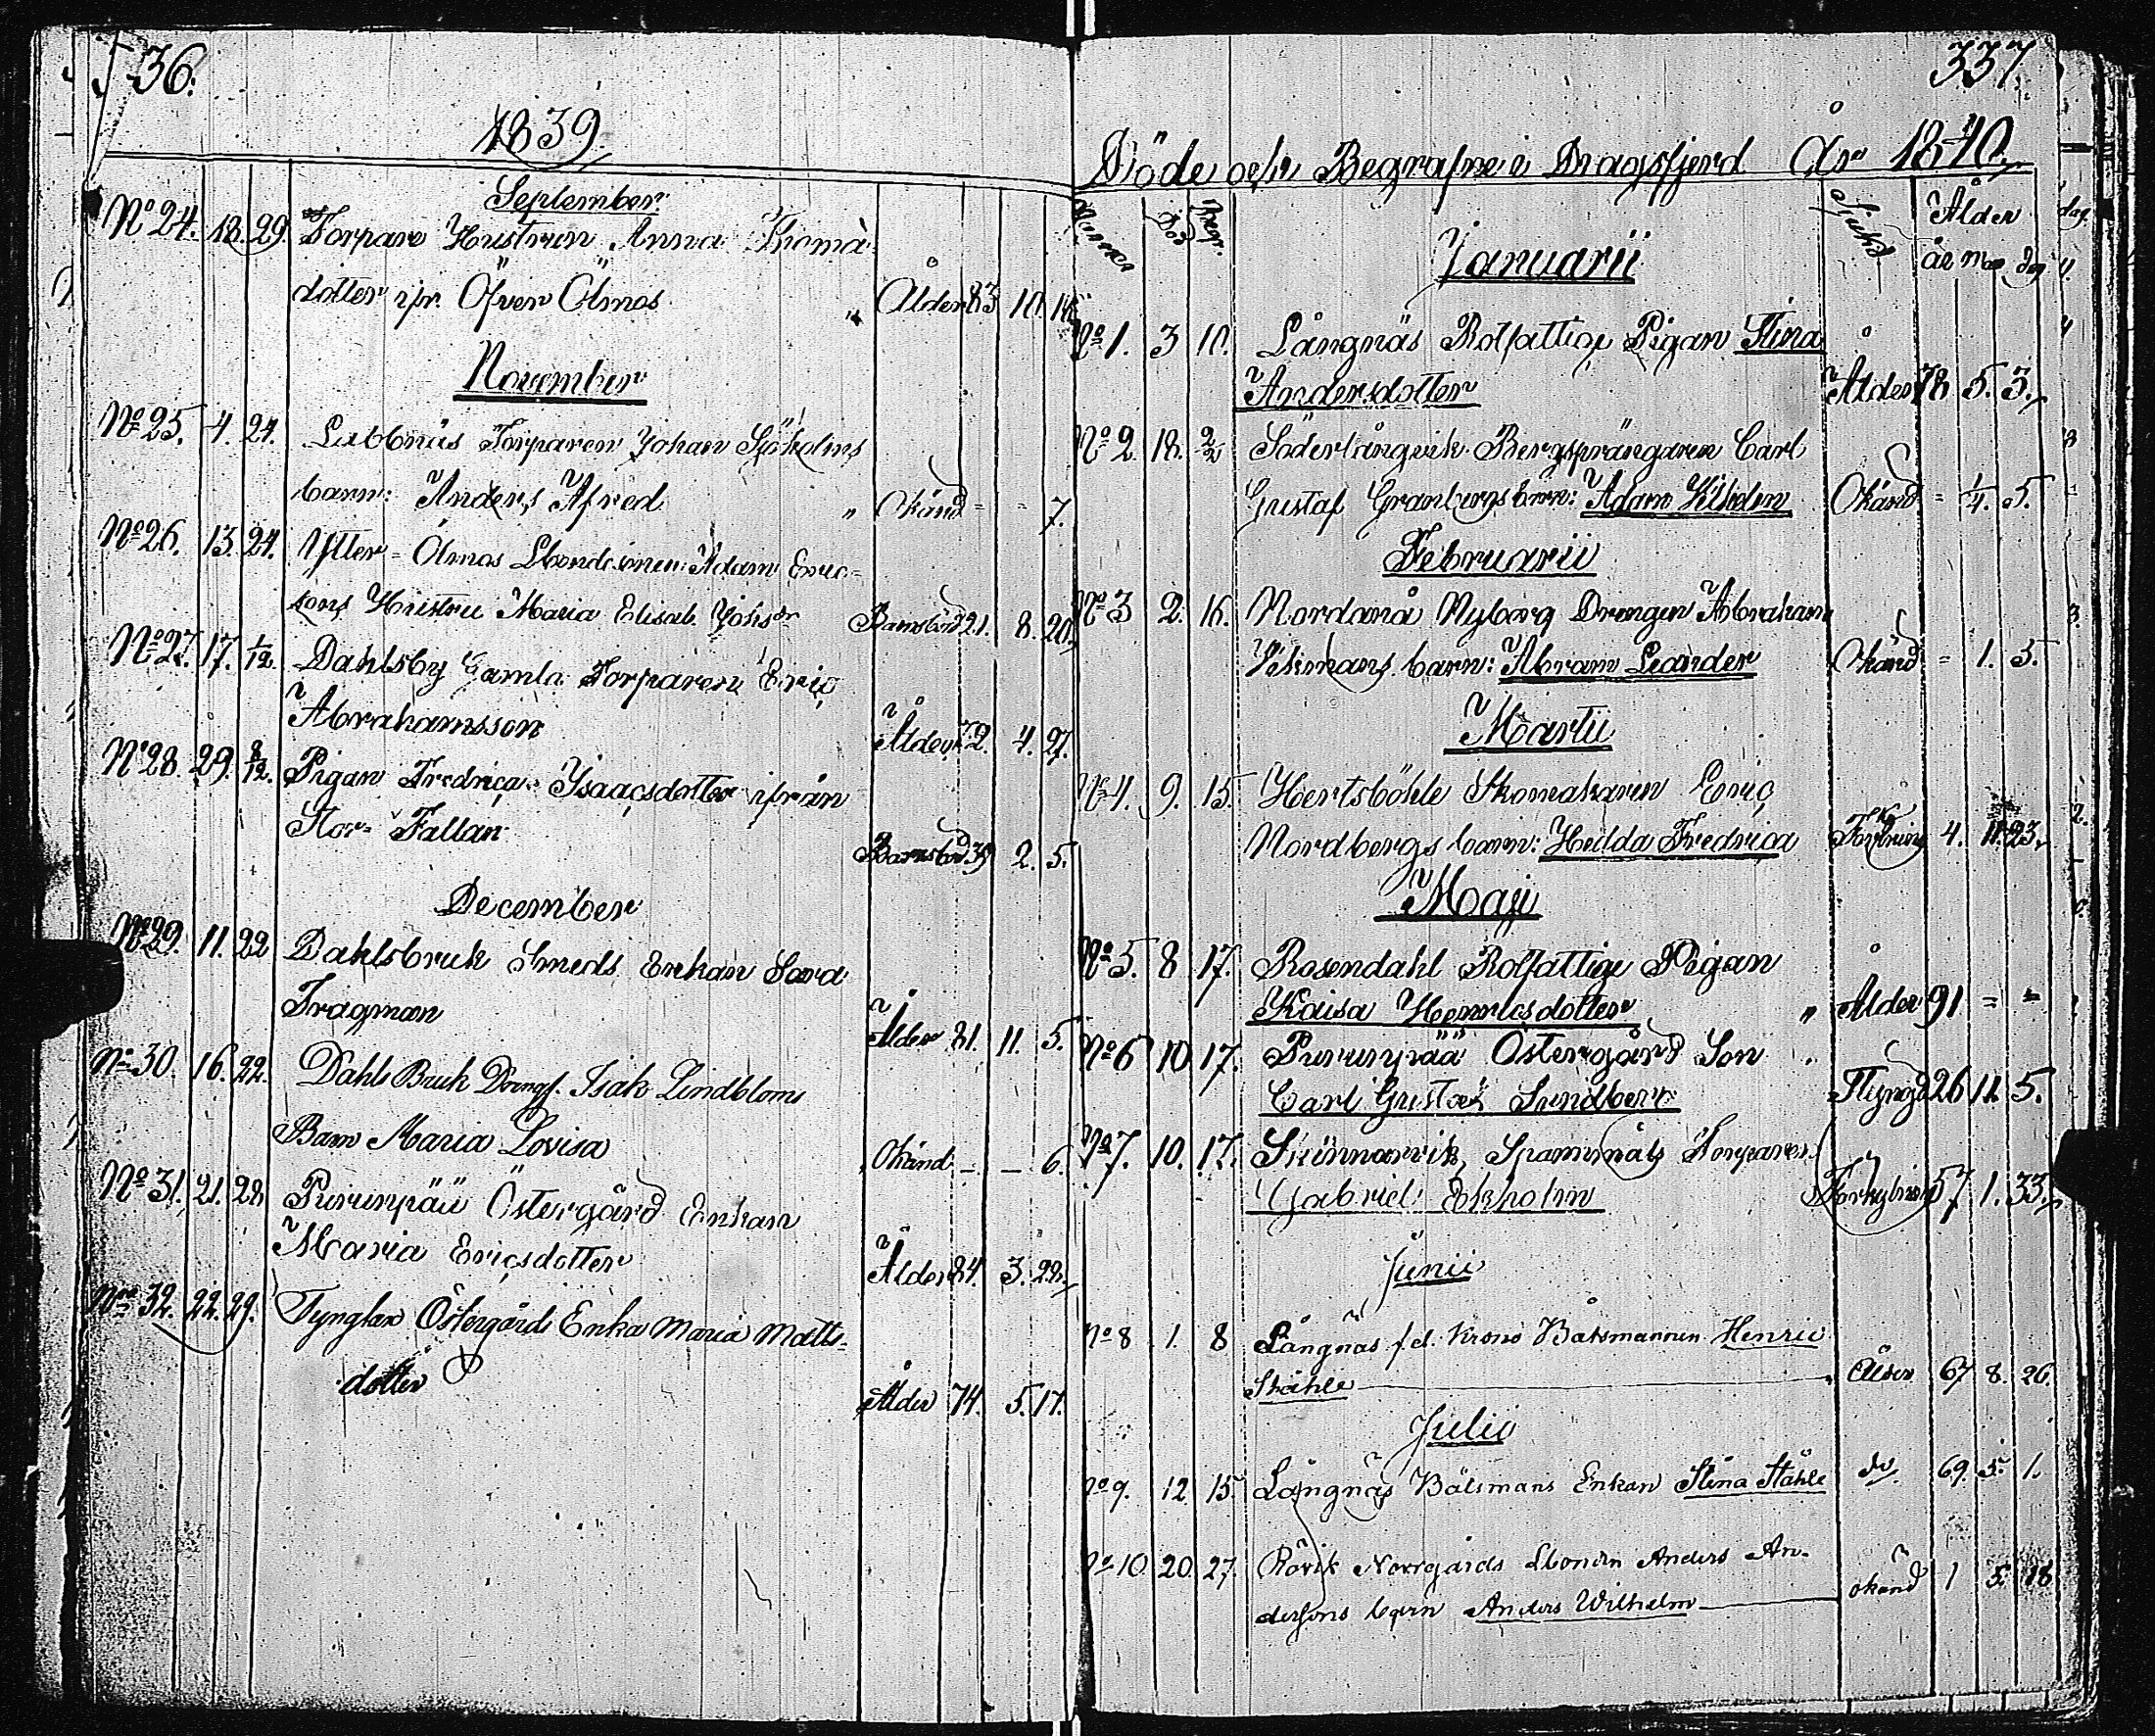 36.
1839.
September.
No 24. 18. 29. Torpare Hustrun Anna Thoma
dotter ifr. Öfver Ölmos " Ålder 83 10.
November
No 25. 4. 24. Labbnäs Torparen Johan Sjöholms
barn: Anders Afred " Okänd = = 7.
No 26. 13. 24. Ytter = Ölmos Lbondsonen Adam Eric=
sons Hustru Maria Elisab. Johsdr Barnsbörd 21. 8. 20.
No 27. 17. 1/12. Dahlsby Gamla Torparen Eric
Abrahamsson Ålder 72. 4. 27.
No 28. 29. 8/12. Pigan Fredrica Isaacsdotter ifrån
Stor= Fallan Barnsbörd 39 2. 5.
December
No 29. 11. 22 Dahlsbruk Smeds Enkan Sara
Tragman Ålder 81. 11. 5.
No 30. 16. 22. Dahls Bruk Drengs. Isak Lindbloms
Barn Maria Lovisa Okänd - - 6.
No 31. 21. 28. Purunpää Östergård Enkan
Maria Ericsdotter Ålder 84. 3. 22.
No 32. 22. 29. Tynglax Östergårds Enka Maria Matts-
dotter Ålder 74. 5. 17.
337.
Döde och Begrafne i Dragsfjerd År 1840.
Död Begr. Sjukd. Ålder
år dag
Januarii
No 1. 3 10. Långnäs Rotfattige Pigan Stina
Andersdotter Ålder 78 5. 3.
No 2. 18. 2/2 Söderlångvik Bergsprängaren Carl
Gustaf Granbergs barn: Adam Vilhelm Okänd = 1/4. 5.
Februarii
No 3 2. 16. Nordanå Nyborg Drengen Abraham
barn: Abram Leander Okänd = 1. 5.
Martii
No 4. 9. 15. Hertsböhle Skomakaren Eric
Nordbergs barn: Hedda Fredrica 4. 11. 23.
Maji
No 5. 8 17. Rosendahl Rotfattige Pigan
Kaisa Henricsdotter " Ålder 91 = =
No 6 10. 17. Purunpää Östergård Son
Carl Gustaf Sundberg 26 11. 5.
No 7. 10. 17. Skinnarvik Torparen
Gabriel Ekholm Förkylning 57 1. 33.
Junii
No 8 1. 8 Långnäs f.d. Krono Båtsmannen Henric
Ståhle Ålder 67 8. 26.
Julii
No 9. 12. 15. Långnäs Båtsmans Enkan Stina Ståhle do 69. 5. 1.
No 10. 20. 27. Rövik Norrgårds Lbonden Anders An-
dersons barn Anders Wilhelm okänd 1 5. 18